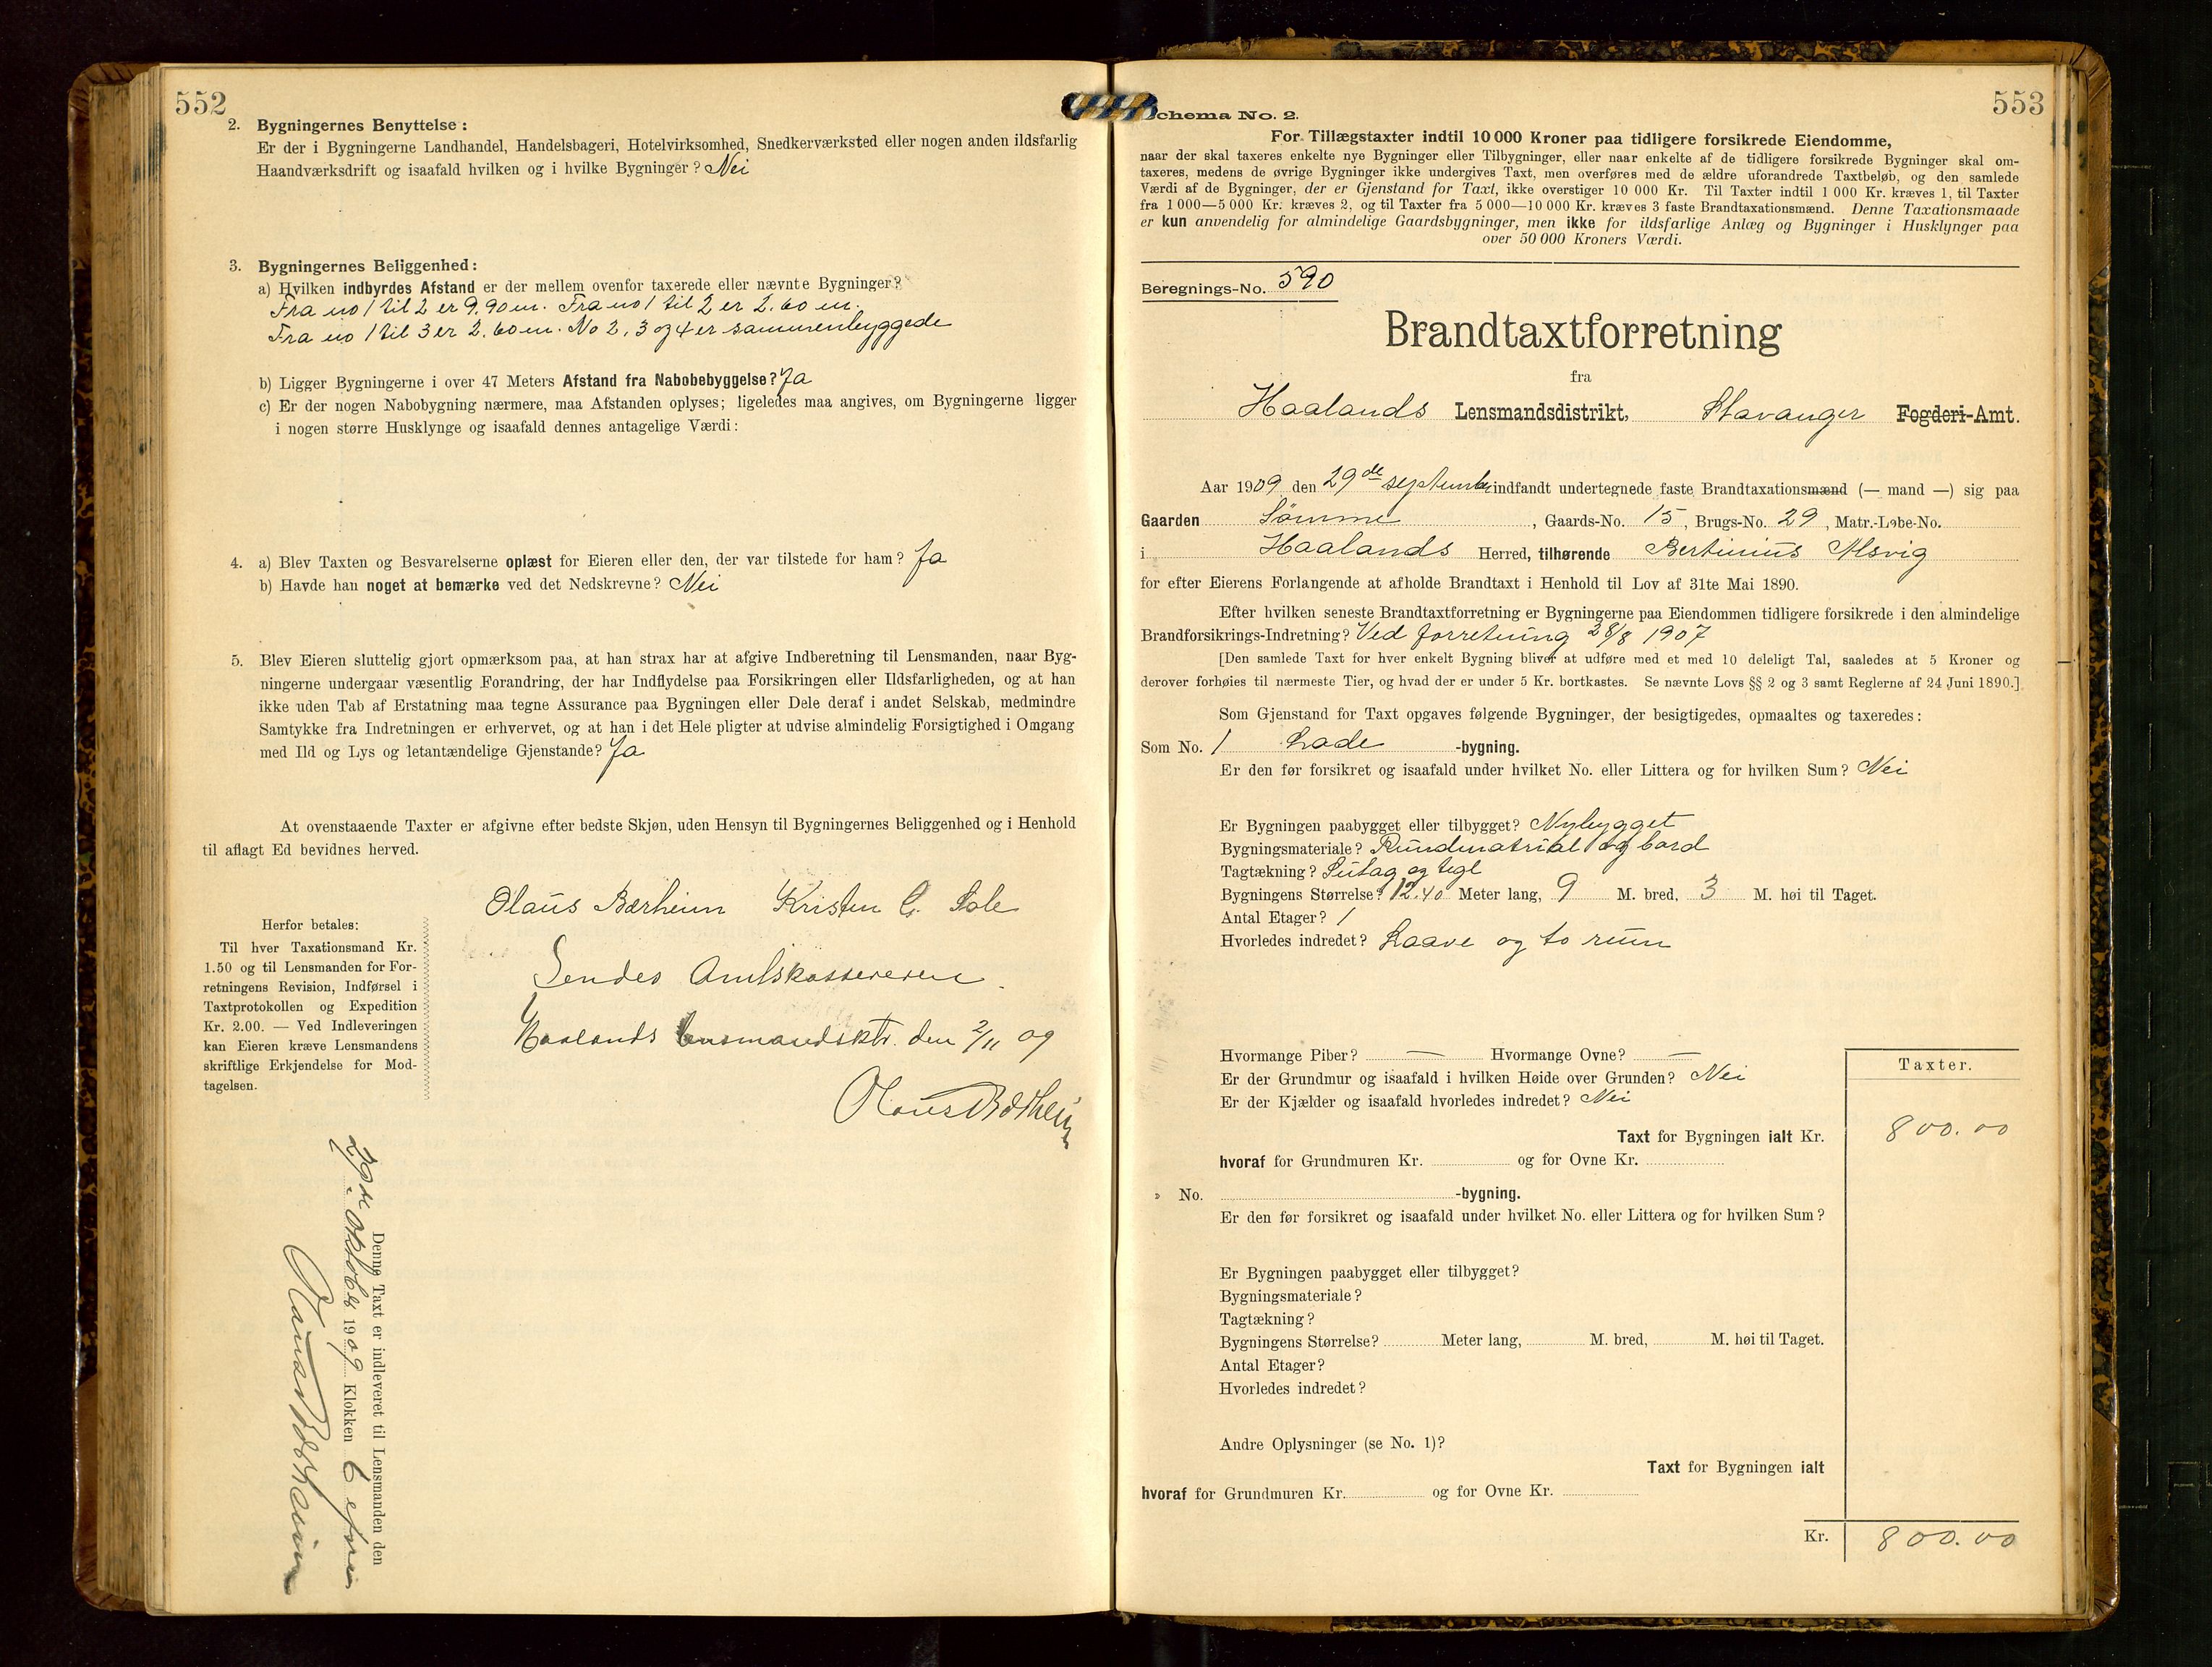 552
2. Bygningernes Benyttelse:
Er der i Bygningerne Landhandel, Handelsbageri, Hotelvirksomhed, Snedkerværksted eller nogen anden ildsfarlig
Haandværksdrift og isaafald hvilken og i hvilke Bygninger? Nei
3. Bygningernes Beliggenhed:
a) Hvilken indbyrdes Afstand er der mellem ovenfor taxerede eller nævnte Bygninger?
Fra no 1 til 2 er 9,90 m. Fra no 1 til 2 er 2.60 m.
Fra no 1 til 3 er 2.60 m. No 2, 3 og 4 er sammenbyggede
b) Ligger Bygningerne i over 47 Meters Afstand fra Nabobebyggelse? Ja
c) Er der nogen Nabobygning nærmere, maa Afstanden oplyses; ligeledes maa angives, om Bygningerne ligger
i nogen større Husklynge og isaafald dennes antagelige Værdi:
4. a) Blev Taxten og Besvarelserne oplæst for Eieren eller den, der var tilstede for ham? Ja
b) Havde han noget at bemærke ved det Nedskrevne? Nei
5. Blev Eieren sluttelig gjort opmærksom paa, at han strax har at afgive Indberetning til Lensmanden, naar Byg-
ningerne undergaar væsentlig Forandring, der har Indflydelse paa Forsikringen eller Ildsfarligheden, og at han
ikke uden Tab af Erstatning maa tegne Assurance paa Bygningen eller Dele deraf i andet Selskab, medmindre
Samtykke fra Indretningen er erhvervet, og at han i det Hele pligter at udvise almindelig Forsigtighed i Omgang
med Ild og Lys og letantændelige Gjenstande? Ja
At ovenstaaende Taxter er afgivne efter bedste Skjøn, uden Hensyn til Bygningernes Beliggenhed og i Henhold
til aflagt Ed bevidnes herved.
Olaus Bærheim Kristen G. Sole
Sendes Amtskassereren.
Haalands Lensmandsktr. den 2/11 09
Olaus Bærheim
Herfor betales:
Til hver Taxationsmand Kr.
1.50 og til Lensmanden for For-
retningens Revision, Indførsel i
Taxtprotokollen og Expedition
Kr. 2.00. — Ved Indleveringen
kan Eieren kræve Lensmandens
skriftlige Erkjendelse for Mod-
tagelsen.
Denne Taxt er indleveret til Lensmanden den
29de Oktober 1909 Klokken 6 efm
Olaus Bærheim
553
Schema No. 2.
For Tillægstaxter indtil 10 000 Kroner paa tidligere forsikrede Eiendomme,
naar der skal taxeres enkelte nye Bygninger eller Tilbygninger, eller naar enkelte af de tidligere forsikrede Bygninger skal om-
taxeres, medens de øvrige Bygninger ikke undergives Taxt, men overføres med de ældre uforandrede Taxtbeløb, og den samlede
Værdi af de Bygninger, der er Gjenstand for Taxt, ikke overstiger 10 000 Kr. Til Taxter indtil 1 000 Kr. kræves 1, til Taxter
fra 1 000—5 000 Kr. kræves 2, og til Taxter fra 5 000—10 000 Kr. kræves 3 faste Brandtaxationsmænd. Denne Taxationsmaade
er kun anvendelig for almindelige Gaardsbygninger, men ikke for ildsfarlige Anlæg og Bygninger i Husklynger paa
over 50 000 Kroners Værdi.
Beregnings-No. 590
Brandtaxtforretning
fra
Haalands Lensmandsdistrikt, Stavanger Fogderi-Amt.
Aar 1909 den 29de september indfandt undertegnede faste Brandtaxationsmænd (— mand —) sig paa
Gaarden Sømme, Gaards-No. 15, Brugs-No. 29, Matr.-Løbe-No.
i Haalands Herred, tilhørende Bertinius Alsvig
for efter Eierens Forlangende at afholde Brandtaxt i Henhold til Lov af 31te Mai 1890.
Efter hvilken seneste Brandtaxtforretning er Bygningerne paa Eiendommen tidligere forsikrede i den almindelige
Brandforsikrings-Indretning? Ved forretning 28/8 1907
[Den samlede Taxt for hver enkelt Bygning bliver at udføre med et med 10 deleligt Tal, saaledes at 5 Kroner og
derover forhøies til nærmeste Tier, og hvad der er under 5 Kr. bortkastes. Se nævnte Lovs §§ 2 og 3 samt Reglerne af 24 Juni 1890.]
Som Gjenstand for Taxt opgaves følgende Bygninger, der besigtigedes, opmaaltes og taxeredes:
Som No. 1 Lade -bygning.
Er den før forsikret og isaafald under hvilket No. eller Littera og for hvilken Sum? Nei
Er Bygningen paabygget eller tilbygget? Nybygget
Bygningsmateriale? Rundmatrial og bord
Tagtækning? Sutag og tegl
Bygningens Størrelse? 12.40 Meter lang, 9 M. bred, 3 M. høi til Taget.
Antal Etager? 1
Hvorledes indredet? Laave og to rum
Hvormange Piber? — Hvormange Ovne? —
Er der Grundmur og isaafald i hvilken Høide over Grunden? Nei
Er der Kjælder og isaafald hvorledes indredet? Nei
Taxter.
Taxt for Bygningen ialt Kr. 800.00
hvoraf for Grundmuren Kr. og for Ovne Kr.
» No. -bygning.
Er den før forsikret og isaafald under hvilket No. eller Littera og for hvilken Sum?
Er Bygningen paabygget eller tilbygget?
Bygningsmateriale?
Tagtækning?
Bygningens Størrelse? Meter lang, M. bred, M. høi til Taget.
Antal Etager?
Hvorledes indredet?
Andre Oplysninger (se No. 1)?
Taxt for Bygningen ialt
hvoraf for Grundmuren Kr. og for Ovne Kr.
Kr. 800.00